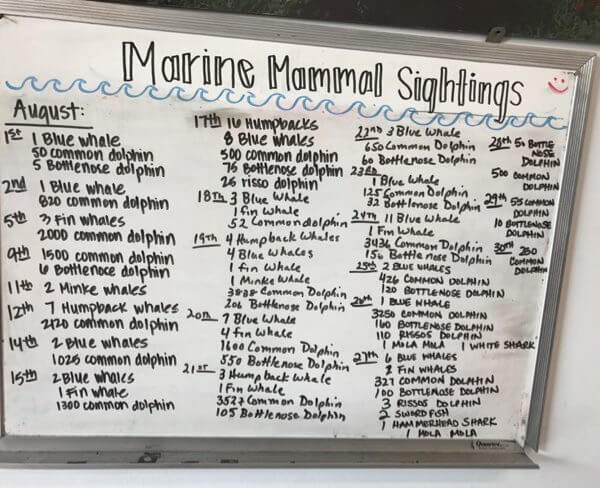 Marine Mammal Sightings
August:
1st 1 Blue whale
50 common dolphin
5 Bottlenose dolphin
2nd 1 Blue whale
820 common dolphin
5th 3 Fin whales
2000 common dolphin
9th 1500 common dolphin
6 Bottlenoce dolphin
11th 2 Minke whales
12th 7 Humpback whales
2120 common dolphin
14th 2 Blue whales
1025 common dolphin
15th 2 Blue whales
1 Fin whale
1300 common dolphin
17th 16 Humpbacks
8 Blue whales
500 common dolphin
75 Bottlenose dolphin
26 risso dolphin
18th 3 Blue Whale
1 fin Whale
52 Common dolphin
19th 4 Humpback Whales
4 Blue Whales
1 fin Whale
1 Minke Whale
3838 Common Dolphin
206 Bottlenose Dolphin
20th 7 Blue Whale
4 fin Whale
1600 Common Dolphin
550 Bottlenose Dolphin
21st 3 Humpback Whale
1 Fin Whale
3527 Common Dolphin
105 Bottlenose Dolphin
22nd 3 Blue Whale
650 Common Dolphin
60 Bottlenose Dolphin
23rd 1 Blue Whale
125 Common Dolphin
32 Bottlenose Dolphin
24th 11 Blue Whale
1 Fin Whale
3436 Common Dolphin
156 Bottlenose Dolphin
25th 2 BLUE WHALES
426 COMMON DOLPHIN
120 BOTTLENOSE DOLPHIN
26th 1 BLUE WHALE
3250 COMMON DOLPHIN
160 BOTTLENOSE DOLPHIN
110 RISSOS DOLPHIN
1 MOLA MOLA 1 WHITE SHARK
27th 6 BLUE WHALES
2 FIN WHALES
327 COMMON DOLPHIN
100 BOTTLENOSE DOLPHIN
3 RISSOS DOLPHIN
2 SWORDFISH
1 HAMMERHEAD SHARK
1 MOLA MOLA
28th 50 BOTTLE
NOSE
DOLPHIN
500 COMMON
DOLPHIN
29th 55 COMMON
DOLPHIN
10 BOTTLENOSE
DOLPHIN
30th 250
COMMON
DOLPHIN